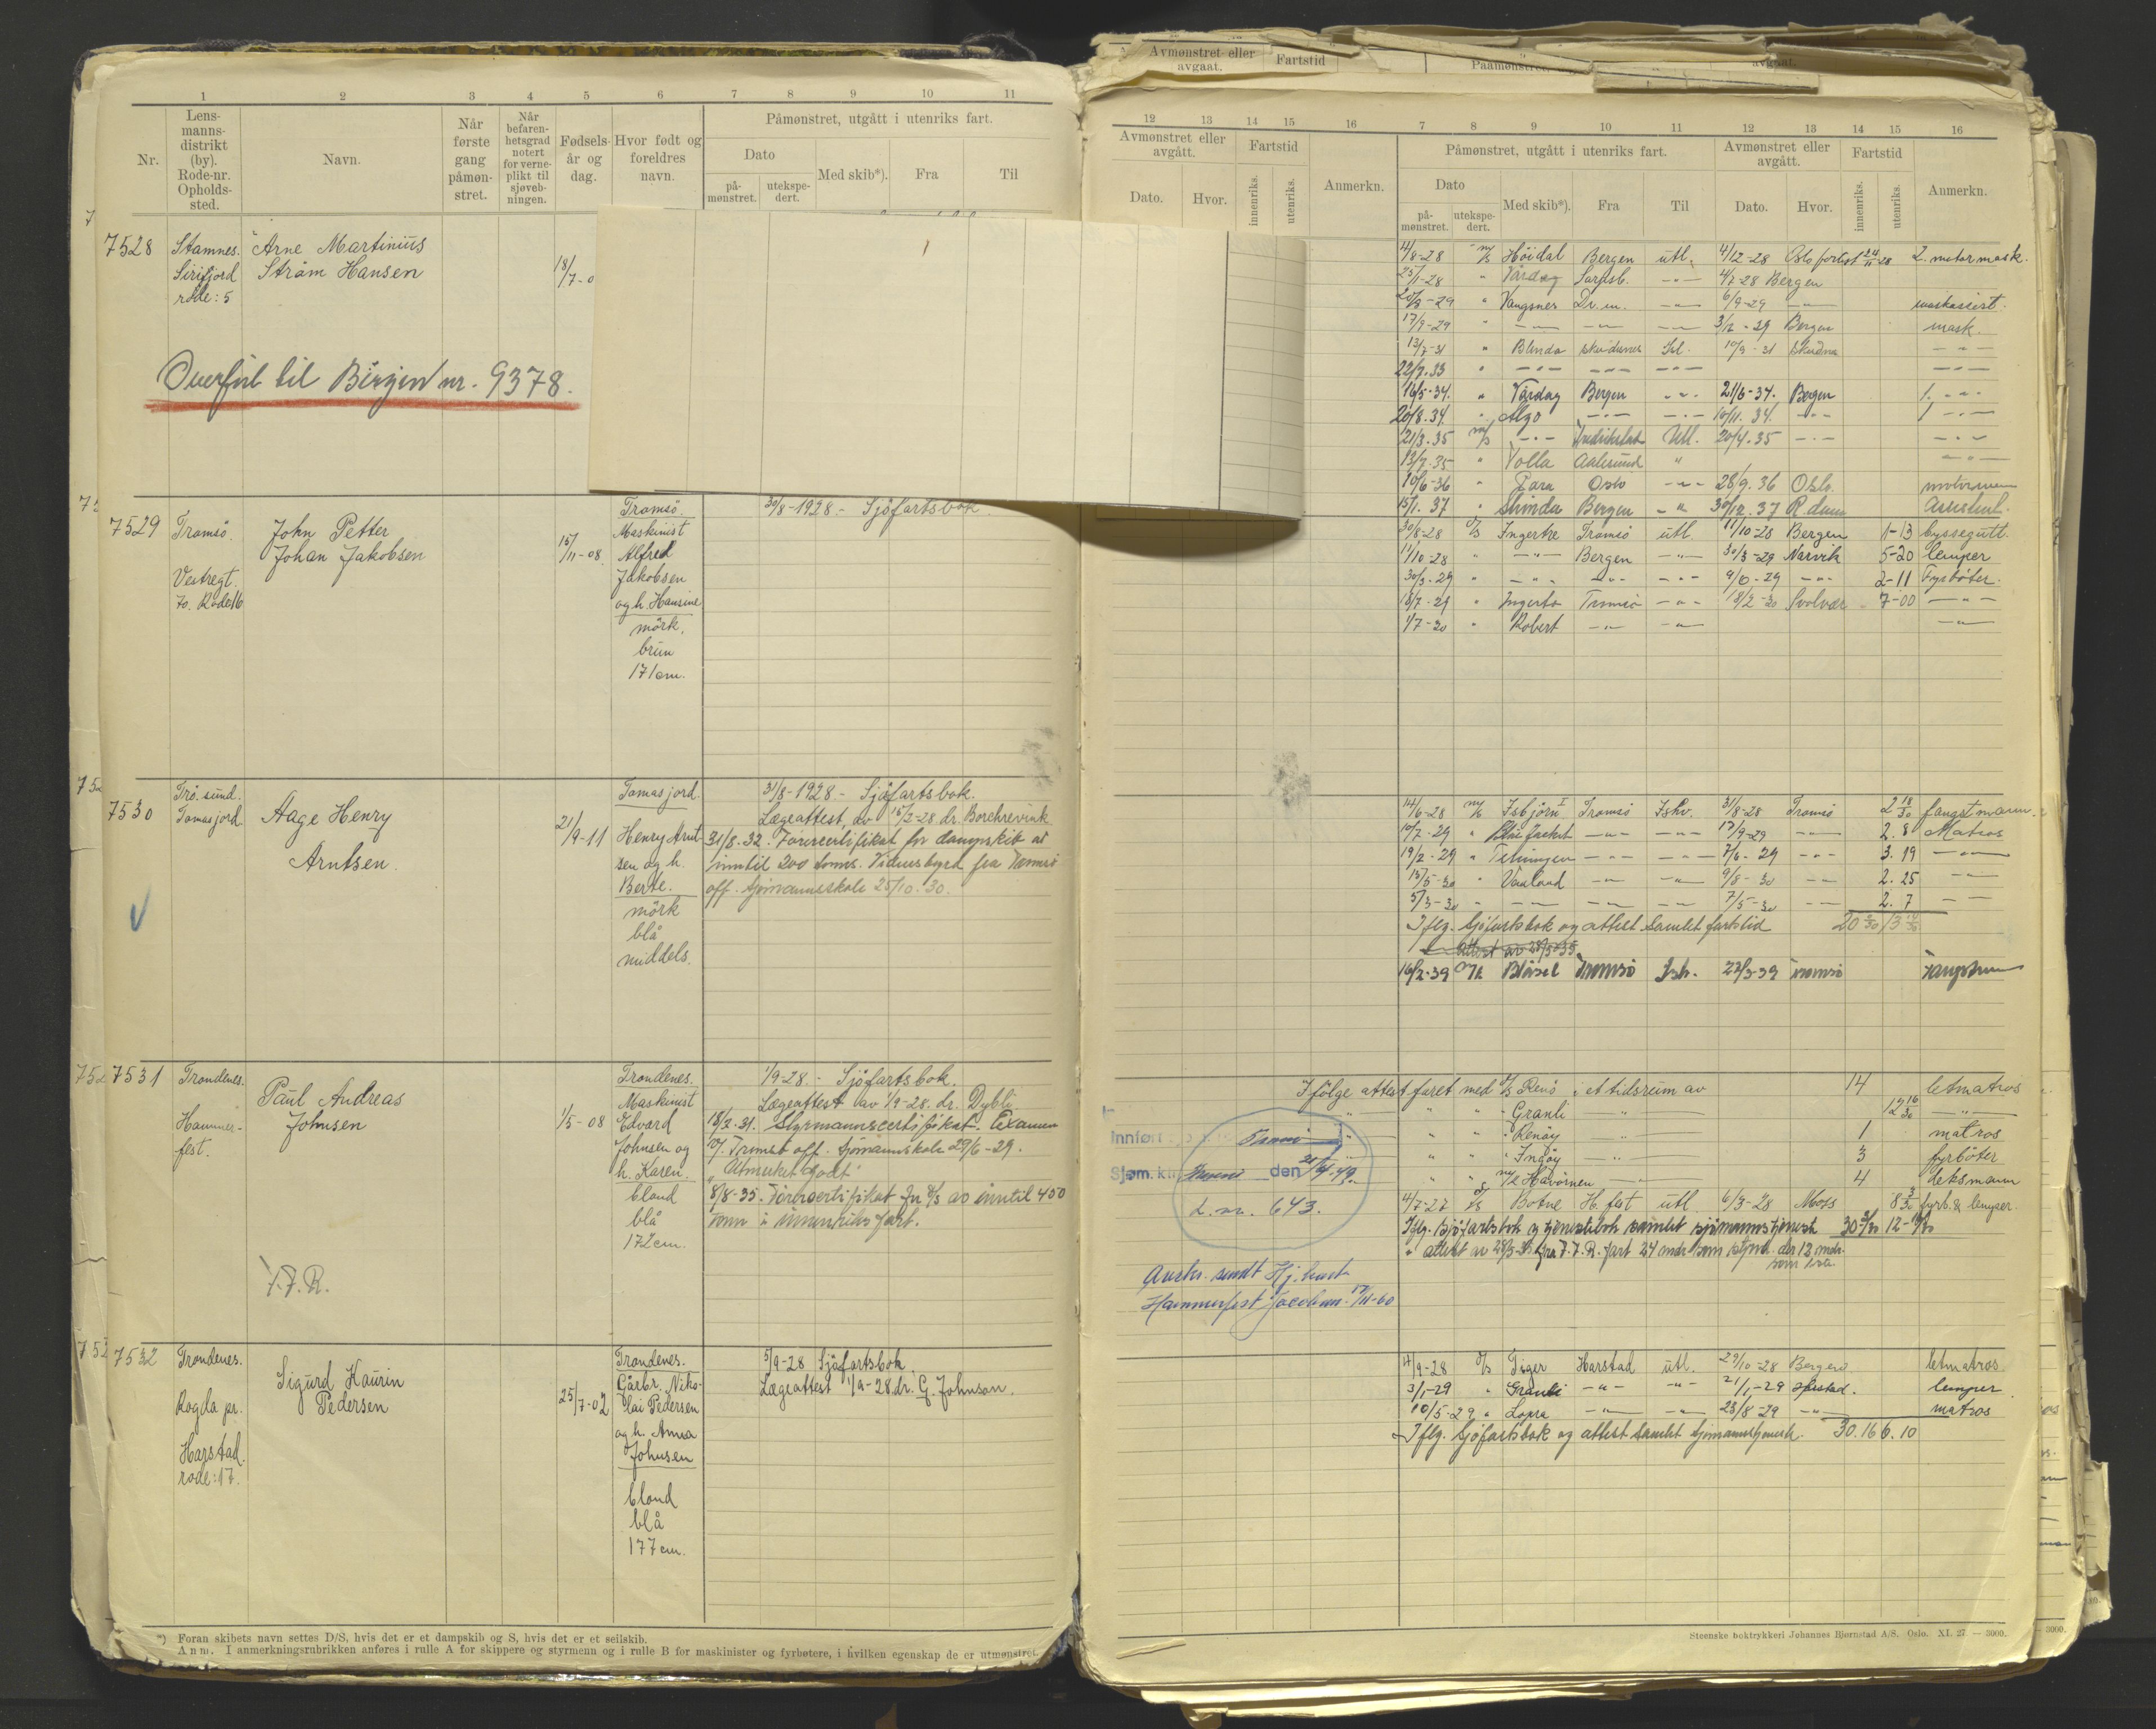 1 2 3 4 5 6 7 8 9 10 11
Nr.
Lens-
manns-
distrikt
(by).
Rode-nr.
Opholds-
sted.
Navn.
Når
første
gang
påmøn-
stret.
Når
befaren-
hetsgrad
notert
for verne-
plikt til
sjøveb-
ningen.
Fødsels-
år og
dag.
Hvor født og
foreldres
navn.
Påmønstret, utgått i utenriks fart.
Dato
på-
mønstret.
utekspe-
dert.
Med skib*).
Fra
Til
7528
Stamnes.
Sirifjord
rode: 5
Arne Martinius
Strøm Hansen
18/7-0
Overført til Bergen nr. 9378.
7529
Tromsö.
Vestregt.
70. Rode 16
John Petter
Johan Jakobsen
15/11-08
Tromsö.
Maskinist
Alfred
Jakobsen
og h. Hansine
mörk.
brun
171 cm.
30/8-1928.- Sjöfartsbok.
7530
Tro.sund.
Tomasjord
Aage Henry
Arntsen.
21/9-11
Tomasjord.
Henry Arnt
sen og h.
Berte.
mörk
blå
middels.
31/8-1928.- Sjöfartsbok.
Lægeattest, av 15/2-28 dr. Borchrevink
31/8-32. Förercertifikat for dampskib av
inntil 200 tonns. Vidnesbyrd fra Tromsö
off. sjömannsskole 25/10.30.
7531
Trondenes.
Hammer-
fest.
Paul Andreas
Johnsen
F.F.R.
1/5-08
Trondenes.
Maskinist
Edvard
Johnsen og
h. Karen.
blond
blå
172 cm.
1/9-28.- Sjöfartsbok.
Lægeattest av 1/9-28. dr. Dybli
18/2-31. Styrmannscertifikat. Examen
v/. Tromsö off. sjömannskole 29/6-29.
"Utmerket godt"
8/8-35. Förercertifikat for d/s av inntil 450
tonn i innenriks fart.
7532
Trondenes.
Kogda pr.
Harstad.
rode: 17.
Sigurd Kaurin
Pedersen
25/7-02
Trondenes.
Gårbr. Niko-
lai Pedersen
og h. Anna
Johnsen
blond
blå
177 cm.
5/9-28 Sjöfartsbok.
Lægeattest 1/9-28. dr. G. Johnson.
*) Foran skibets navn settes D/S, hvis det er et dampskib og S, hvis det er et seilskib.
Anm. I anmerkningsrubrikken anføres i rulle A for skippere og styrmenn og i rulle B for maskinister og fyrbøtere, i hvilken egenskap de er utmønstret.
Avmønstret eller
avgaat.
Fartstid
12 13 14 15 16 7 8 9 10 11 12 13 14 15 16
Avmønstret eller
avgått.
Fartstid
Dato.
Hvor.
innenriks.
utenriks.
Anmerkn.
Påmønstret, utgått i utenriks fart.
Dato
på-
mønstret.
utekspe-
dert.
Med skib*).
Fra
Til
Avmønstret eller
avgått.
Dato.
Hvor.
Fartstid
innenriks.
utenriks.
Anmerkn.
4/8-28 " m/s Höidal Bergen utl. 4/12-28 Oslo 2. motormask.
25/1-28 " Vardag Sarpsb. -"- 4/7-28 Bergen
20/3-29 " Vangsnes Dr.m. -"- 6/9-29 -"- maskassist.
17/9-29 " -"- -"- -"- 3/12-29 Bergen mask.
13/7-31 " Blinda Skudenes Isl. 10/9-31 Skudns -"-
22/7.33 " -"- -"- -"- -"-
16/5-34. " Vardag Bergen -"- 21/6-34. Bergen 1. -"-
20/8.34. " Algo -"- -"- 10/11.34. -"- 1 -"-
21/3.35 m/s -"- Fredrikstad Utl. 20/4.35 -"- -"-
13/7.35 " Volla Aalesund " -"-
10/6-36 " Tara Oslo -"- 28/9.36 Oslo.
15/1.37 " Bergen -"- 30/12.37 R.dam Assistent.
30/8-28 d/s Ingertre Tromsö utl. 11/10-28 Bergen 1-13 byssegutt.
11/10-28 " -"- Bergen -"- 30/3-29 Narvik 5-20 lemper
30/3-29 " -"- -"- -"- 9/6-29 -"- 2-11 Fyrböter.
18/7-29 " Ingerto Tromsö -"- 18/2-30 Svolvær 7-00 -"-
1/7-30 " Robert -"- -"- -"-
14/6-28 m/k Isbjörn I Tromsö Ishv. 31/8-28 Tromsö 2 18/30 fangstmann.
10/7-29 " -"- -"- 17/9-29 -"- 2.8 Matros
19/2-29 " Telningen -"- -"- 7/6-29 -"- 3.19 -"-
15/5-30 " Vanland -"- -"- 9/8-30 -"- 2.25 -"-
5/3-30 " -"- -"- -"- 7/5-30 -"- 2.7 -"-
Iflg. Sjöfartsbok og attest samlet fartstid
attest av 28/5-35
16/2-39 m/k Blåsel Tromsö Ish. 22/3-39 Tromsö Fangstm
Ifölge attest faret med d/s Renö i et tidsrum av 14 letmatros
" " " " Granli -"- 12 16/30 -"-
" " " Renöy -"- 1 matros
" " " Ingöy -"- 3 fyrböter
" " m/k Havörnen -"- 4 deksmann
4/7-27 d/s Botne H.fest utl. 6/3-28 Moss 8 3/30 fyrb. & lemper.
Iflg. sjöfartsbok og tjenestebok samlet sjömannstjeneste
" attest av 28/3-35 fra F.F.R. fart 24 mdr. som styrm. derav 12 mdr.
Innført
Tromsö
Sjøm.k. den 21/4-49.
L.nr. 643.
Avskr. sendt Hj. kont
Hammerfest 17/11-60
14/9-28 d/s Tiger Harstad utl. 29/10-28 Bergen letmatros
3/1-29 " Granli -"- -"- 21/1-29 Harstad. lemper
10/5-29 " Lopra -"- -"- 23/8-29 -"- matros
Iflg. Sjöfartsbok og attest samlet sjömannstjeneste. 30.16 6.10
Steenske boktrykkeri Johannes Bjørnstad A/S. Oslo. XI. 27. — 3000.